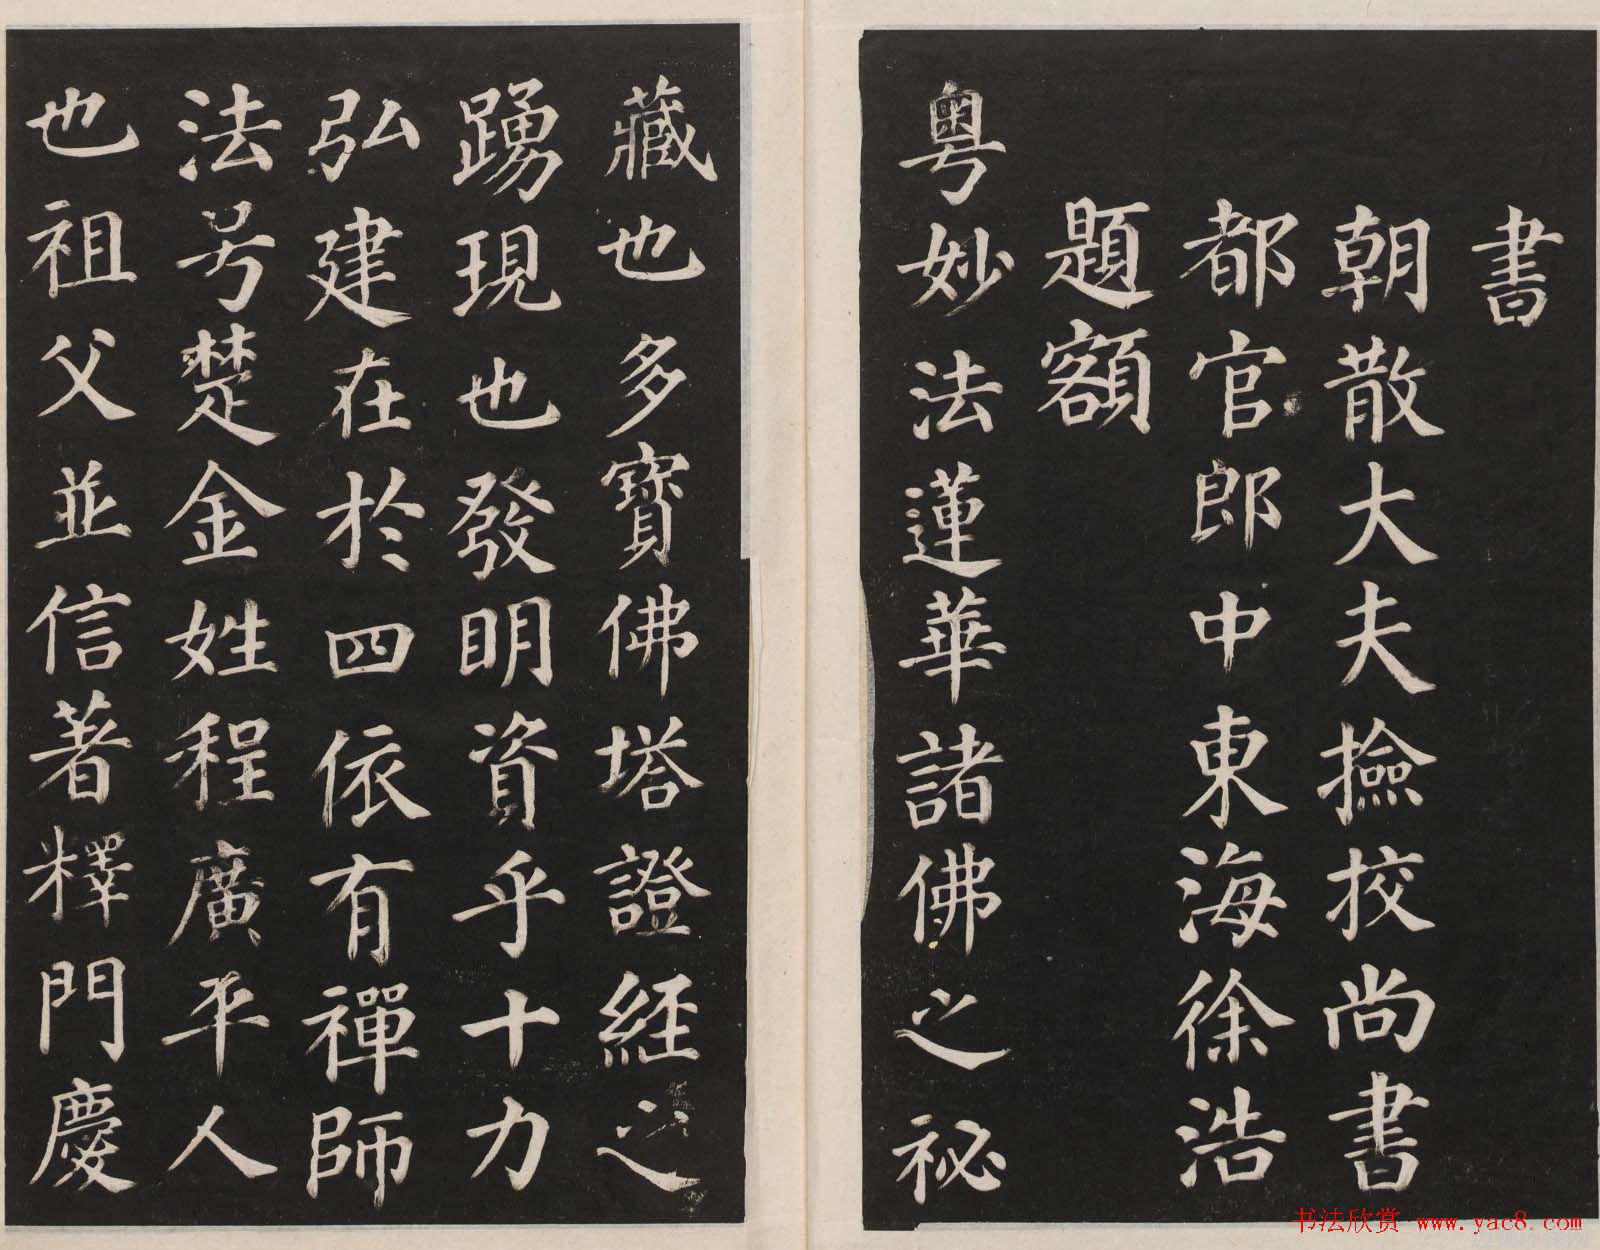 書
朝散大夫撿挍尚書
都官郎中東海徐浩
題額
粵妙法蓮華諸佛之祕
藏也多寶佛塔證經之
踴現也發明資乎十力
弘建在於四依有禪師
法号楚金姓程廣平人
也祖父並信著釋門慶
书法欣赏 www.yac8.com